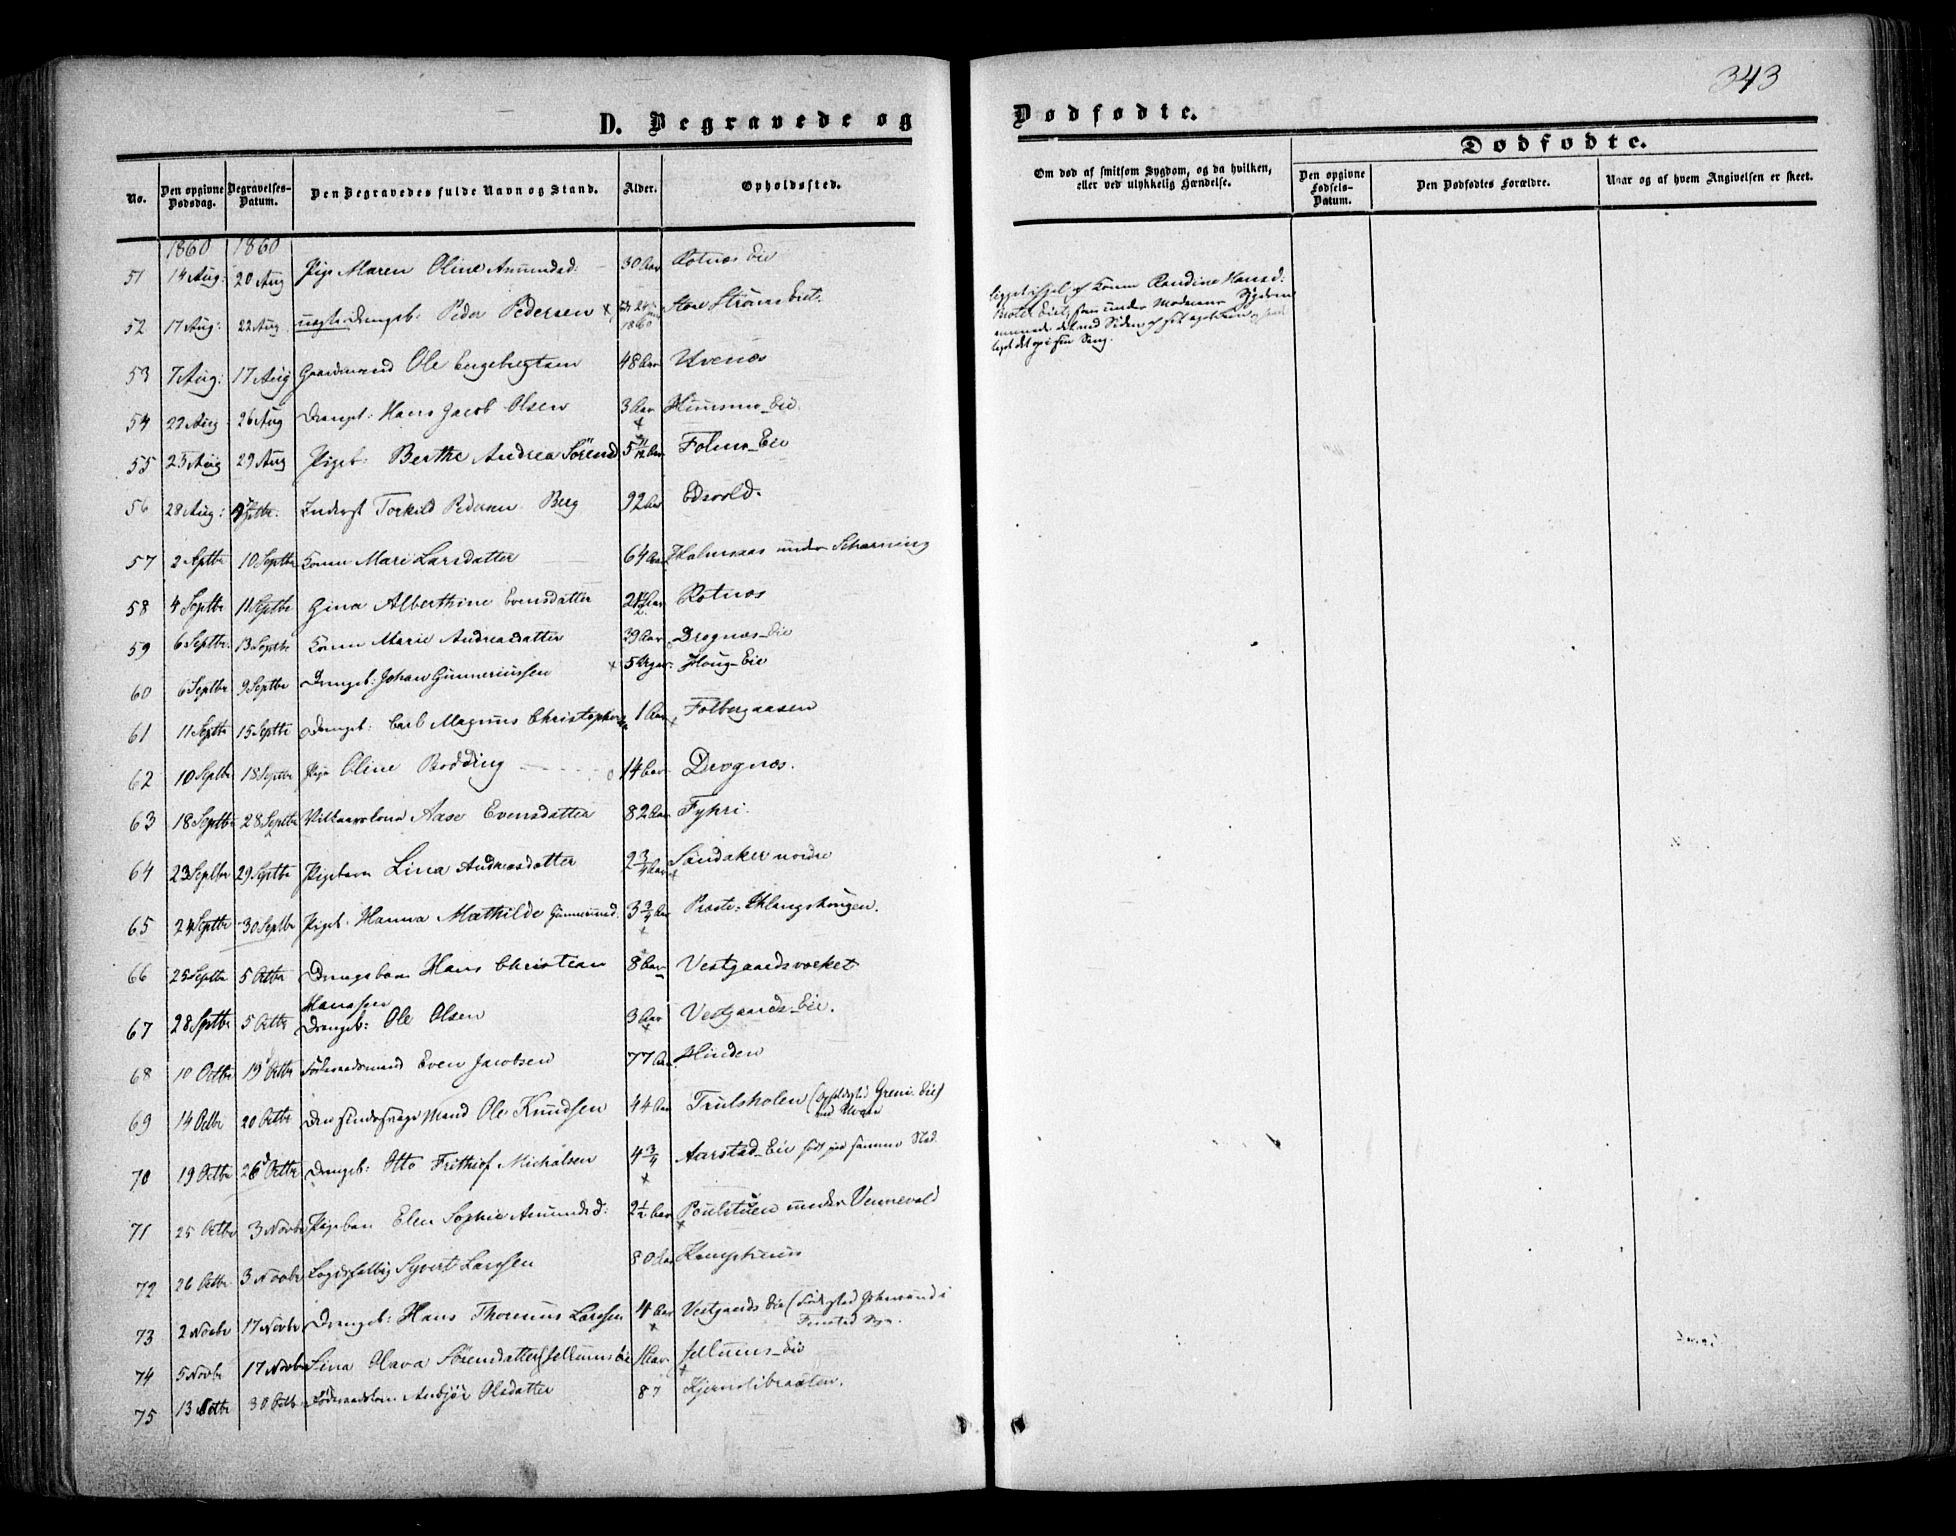 343
D. Begravede og Dødfødte.
Dødfødte.
No. Den opgivne Dødsdag. Begravelses-Datum. Den Begravedes fulde Navn og Stand. Alder. Opholdssted. Om død af smitsom Sygdom, og da hvilken, eller ved ulykkelig Hændelse. Den opgivne Fødsels-Datum. Den Dødfødtes Forældre. Naar og af hvem Angivelsen er skeet.
1860 1860
51 14 Aug: 20 Aug Pige Maren Oline Amundsd: 30 Aar Rotnæs Eie
52 17 Aug: 22 Aug uægte Drengeb: Peder Pedersen × 1860 Store Strøms Eiet.
af Konen Randine Hansd: under Moderens Sygdom
ved Siden af
lagt det op i sin Seng.
53 7 Aug: 17 Aug Gaardmand Ole Engebregtsen 48 Aar Uvenæs
54 22 Aug 26 Aug Drengeb: Hans Jacob Olsen 3 Aar Eie.
55 25 Aug 29 Aug Pigeb: Berthe Andrea Sørensd 5 Aar Eie
56 28 Aug: Septbr. Inderst Torkild Pedersen Berg 92 Aar Edsvold.
57 2 Septbr 10 Septbr Konen Mari Larsdatter 64 Aar under
58 4 Septbr 11 Septbr Gina Alberthine Evensdatter Rotnæs
59 6 Septbr: 13 Septbr Konen Marie Andreasdatter 39 Aar Drognæs-Eie
60 6 Septbr 9 Septbr Drengeb: Johan Gunneriussen × 5 Uger Houg-Eie
61 11 Septbr 15 Septbr Drengeb: Carl Magnus Christophersen 1 Aar × Folbergaasen
62 10 Septbr 18 Septbr Pige Oline Bodding 14 Aar Drognæs.
63 18 Septbr 28 Septbr Aase Evensdatter 82 Aar Fyhri.
64 23 Septbr 29 Septbr Pigebarn Lina Andreasdatter 2 3/4 Aar × Sandaker nordre
65 24 Septbr 30 Septbr Pigeb. Hanna Mathilde Gunneriusd. 3 3/4 Aar ×
66 25 Septbr 5 Octbr Drengebarn Hans Christian Hanssen 8 Aar Vestgaardsvocket
67 28 Septbr 5 Octbr Drengeb: Ole Olsen 3 Aar × Vestgaards-Eie.
68 10 Octbr 19 Octbr Føderaadsmand Even Jacobsen 77 Aar Hinden
69 14 Octbr 20 Octbr Den sindssvage Mand Ole Knudsen 44 Aar Trulsholen
70 19 Octbr 26 Octbr Drengeb: Otto Frithiof Michalsen 4 3/4 × Aarstad-Eie født paa samme Sted
71 25 Octbr 3 Novbr Pigebarn Elen Sophie Amundsd: 2 1/2 Aar × Poulstuen under Vennevold
72 26 Octbr 3 Novbr Sÿvert Larssen 80 Aar
73 2 Novbr 17 Novbr Drengeb: Hans Thorenius Larssen 4 Aar × Vestgaards Eie
74 5 Novbr 17 Novbr Lina Olava Sørensdatter (Jellumseie Jellums-Eie
75 13 30 Anbjør Olsdatter 87 Kjernslibraaten.